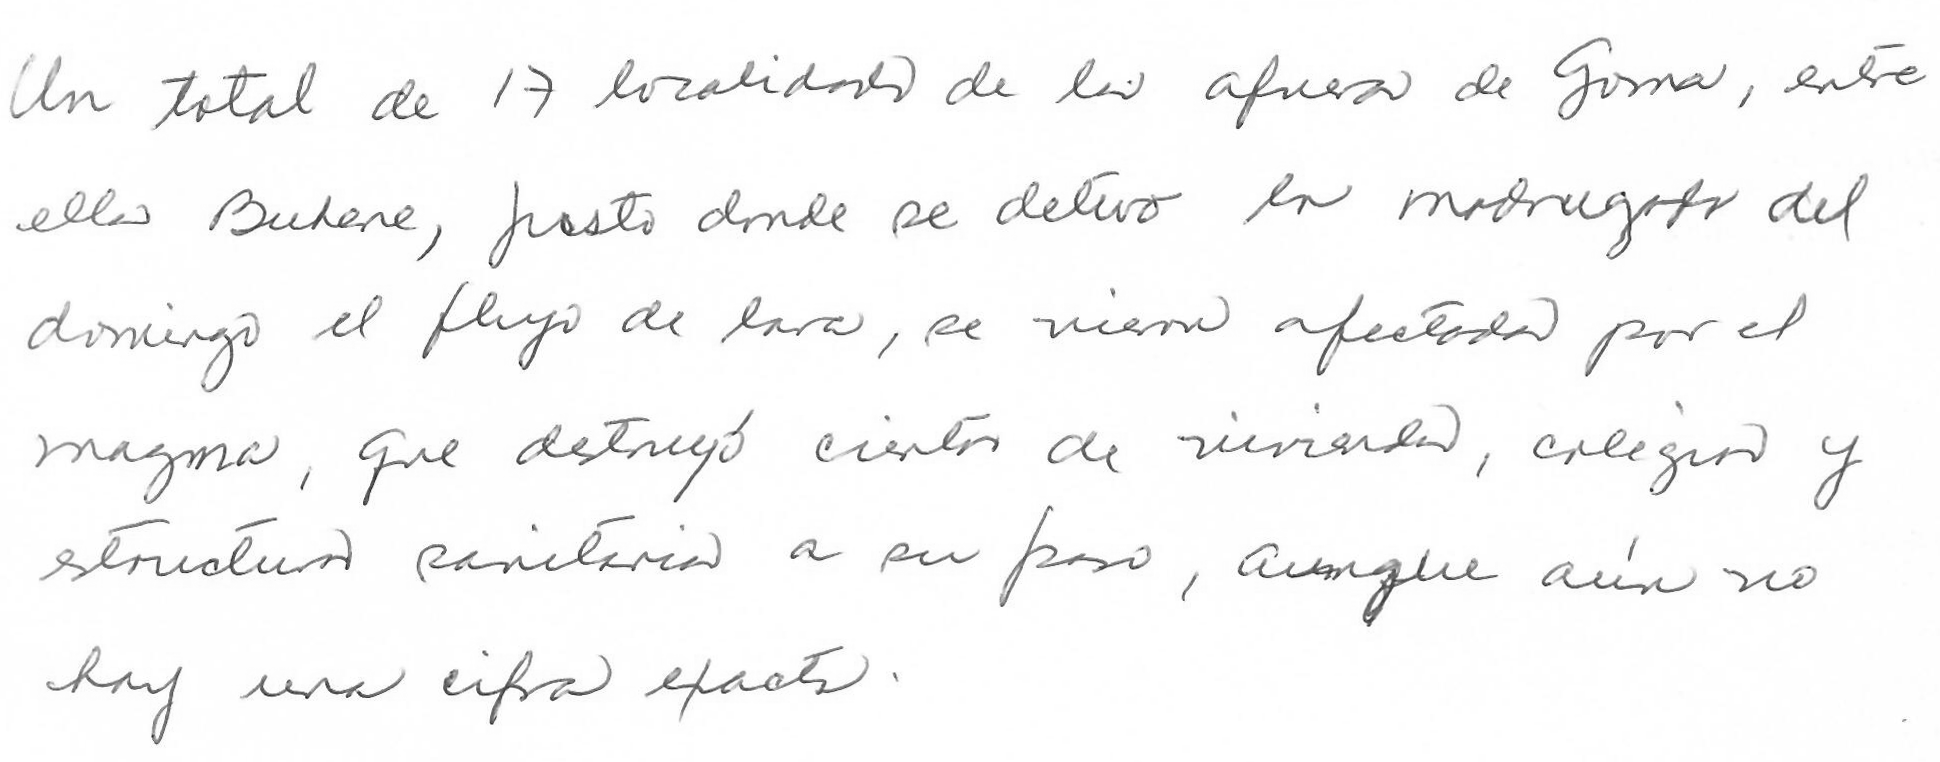 Un total de 17 localidades de las afueras de Goma, entre
ellas Buhene, justo donde se detuvo la madrugada del
domingo el flujo de lava, se vieron afectadas por el
magma, que destruyó cientos de viviendas, colegios y
estructuras sanitarias a su paso, aunque aún no
hay una cifra exacta.